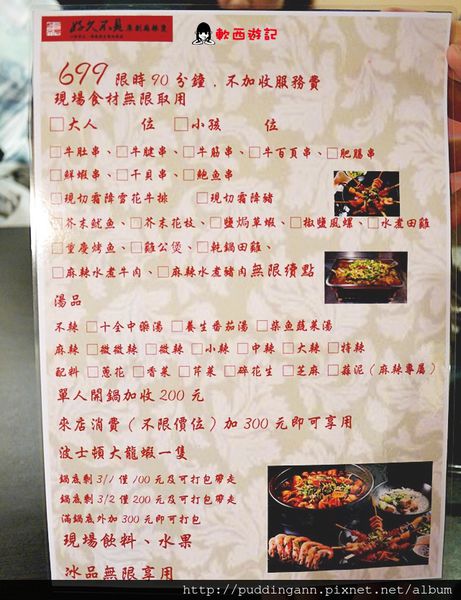 好久不見
串創麻辣燙
軟西遊記
699 限時90分鐘，不加收服務費
現場食材無限取用
□大人 位 □小孩 位
□牛肚串、□牛腱串、□牛筋串、□牛百頁串、□肥腸串
□鮮蝦串、□干貝串、□鮑魚串
□現切霜降雪花牛排 □現切霜降豬
□芥末魷魚、□芥末花枝、□鹽焗草蝦、□椒鹽風螺、□水煮田雞
□重慶烤魚、□雞公煲、□乾鍋田雞、
□麻辣水煮牛肉、□麻辣水煮豬肉無限續點
湯品
不辣 □十全中藥湯 □養生番茄湯 □柴魚蔬菜湯
麻辣 □微微辣 □微辣 □小辣 □中辣 □大辣 □特辣
配料 □蔥花 □香菜 □芹菜 □碎花生 □芝麻 □蒜泥（麻辣專屬）
單人開鍋加收200元
來店消費（不限價位）加300元即可享用
波士頓大龍蝦一隻
鍋底剩3/1僅100元及可打包帶走
鍋底剩3/2僅200元及可打包帶走
滿鍋底外加300元即可打包
現場飲料、水果
冰品無限享用
http://puddingann.pixnet.net/album